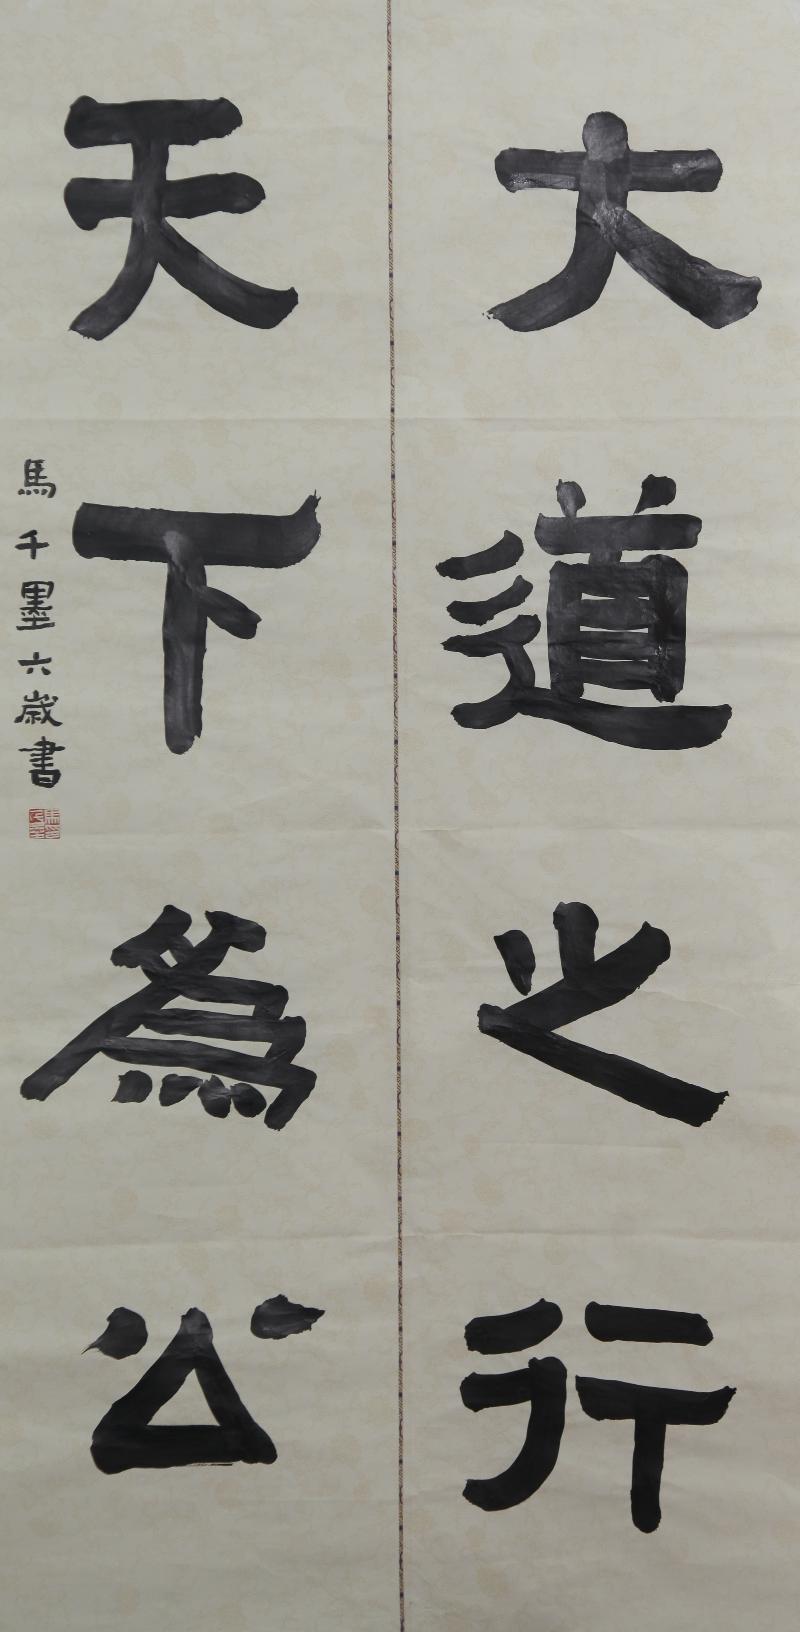 大道之行
天下為公
馬千墨六歲書